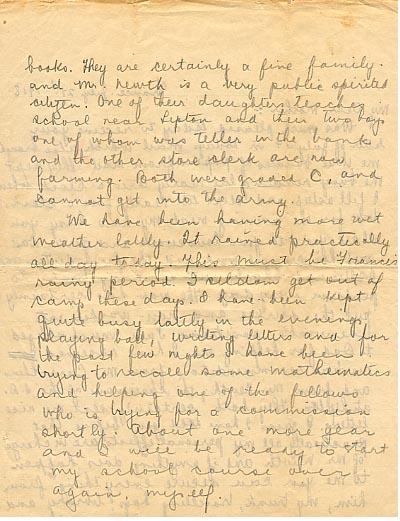 books. They are certainly a fine family.
and Mr. Newth is a very public spirited
citizen. One of their daughters teaches
school near Lipton and their two boys
one of whom was teller in the bank
and the other store clerk are now
farming. Both were graded C, and
cannot get into the army.
We have been having more wet
weather lately. It rained practically
all day today. This must be France's
rainy period. I seldom get out of
camp these days. I have been kept
quite busy lately in the evenings
playing ball, writing letters and for
the past few nights I have been
trying to recall some mathematics
and helping one of the fellows
who is trying for a commission
shortly. About one more year
and I will be ready to start
my school course over
again, myself.